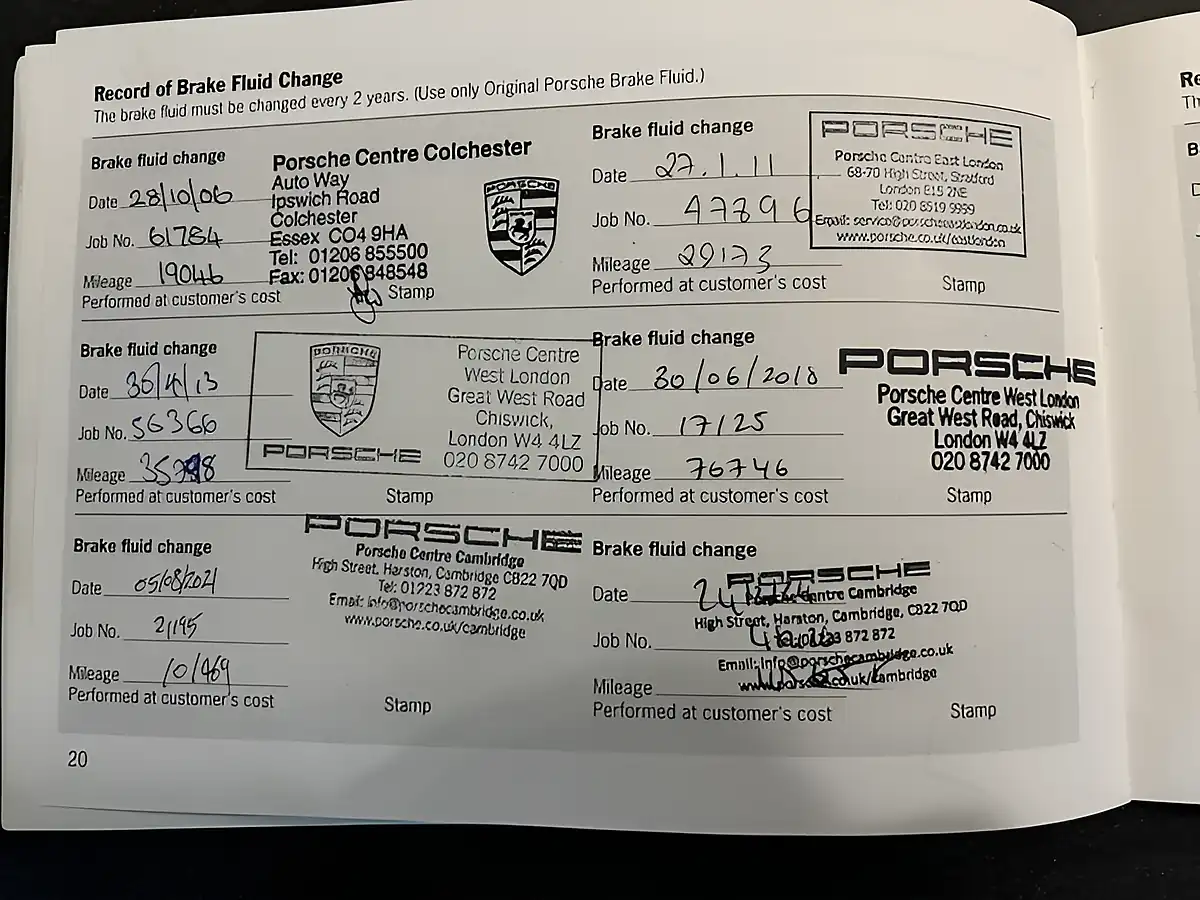 Record of Brake Fluid Change
The brake fluid must be changed every 2 years. (Use only Original Porsche Brake Fluid.)
Brake fluid change
Date 28/10/06
Job No. 61784
Mileage 19046
Performed at customer's cost
Porsche Centre Colchester
Auto Way
Ipswich Road
Colchester
Essex CO4 9HA
Tel: 01206 855500
Fax: 01206 848548
PORSCHE
Stamp
Brake fluid change
Date 27.1.11
Job No. 47896
Mileage 29173
Performed at customer's cost
PORSCHE
Porsche Centre East London
68-70 High Street, Stratford
London E15 2NE
Tel: 020 8519 9999
Email: service@porscheeastlondon.co.uk
www.porsche.co.uk/eastlondon
Stamp
Brake fluid change
Date 30/4/13
Job No. 56366
Mileage
Performed at customer's cost
PORSCHE
PORSCHE
Porsche Centre
West London
Great West Road
Chiswick,
London W4 4LZ
020 8742 7000
Stamp
Brake fluid change
Date 30/06/2018
Job No. 17125
Mileage 76746
Performed at customer's cost
PORSCHE
Porsche Centre West London
Great West Road, Chiswick
London W4 4LZ
020 8742 7000
Stamp
Brake fluid change
Date 05/08/2021
Job No. 21195
Mileage 101469
Performed at customer's cost
PORSCHE
Porsche Centre Cambridge
High Street, Harston, Cambridge CB22 7QD
Tel: 01223 872 872
Email: info@porschecambridge.co.uk
www.porsche.co.uk/cambridge
Stamp
Brake fluid change
Date
Job No.
Mileage
Performed at customer's cost
PORSCHE
Porsche Centre Cambridge
High Street, Harston, Cambridge, CB22 7QD
Tel: 01223 872 872
Email: info@porschecambridge.co.uk
www.porsche.co.uk/cambridge
Stamp
20